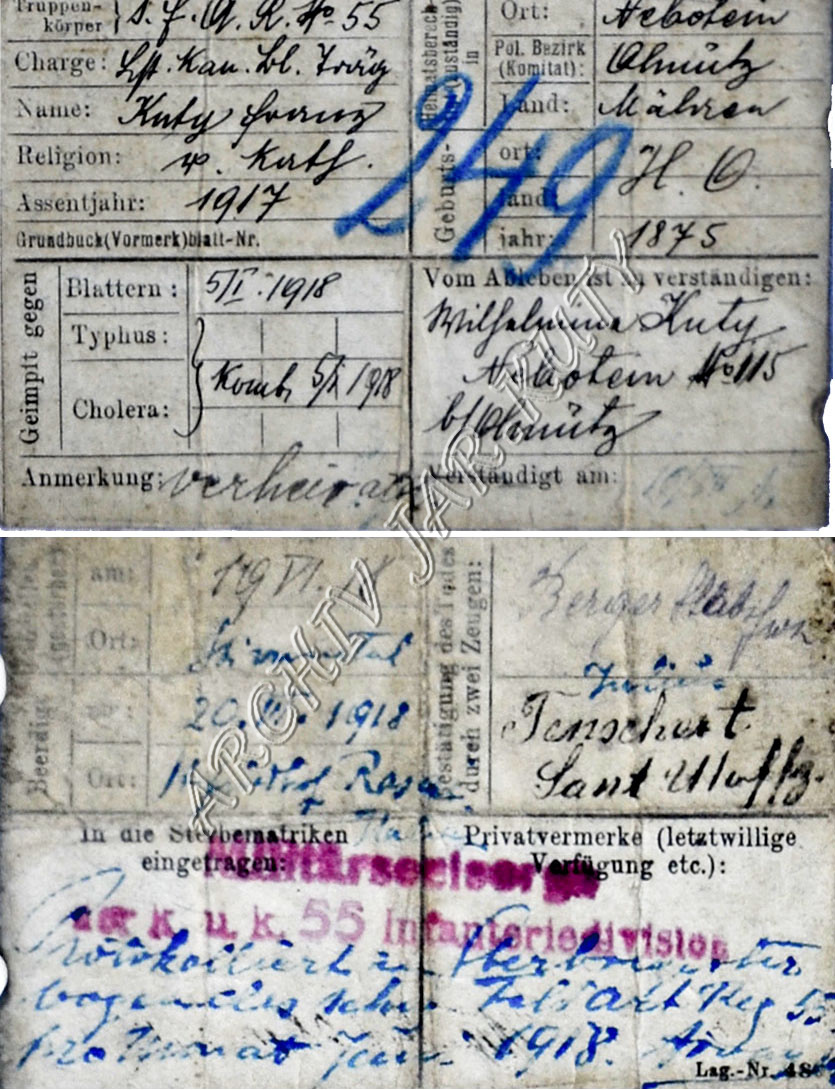 Truppen-
körper S. F. A. R. No 55
Charge: Lst. Kan. Bl. Träg
Name: Kuty Franz
Religion: r. Kath.
Assentjahr: 1917
Grundbuch(Vormerk)blatt-Nr.
Heimatsbereich (zuständig) in
Ort: Nebotein
Pol. Bezirk
(Komitat): Olmütz
Land: Mähren
Geburts-
ort: H. O.
land:
jahr: 1875
249
Geimpft gegen
Blattern: 5/I. 1918
Typhus:
Komb. 5/I 1918
Cholera:
Anmerkung: verheiratet
Vom Ableben ist zu verständigen:
Wilhelmine Kuty
Nebotein No 115
b/Olmütz
Verständigt am:
ARCHIV JAR KUTY
am: 19 VI. 18
Ort:
Beerdigt
am: 20. VI. 1918
Ort:
Bestätigung des Todes
durch zwei Zeugen:
Berger
Julius
Tenschert
In die Sterbematriken
eingetragen:
Privatvermerke (letztwillige
Verfügung etc.):
Militärseelsorge
der k. u. k. 55 Infanteriedivision
Protokolliert
bogen des schw. Feldart Reg 55
pro Monat Juni 1918.
Lag.-Nr. 48